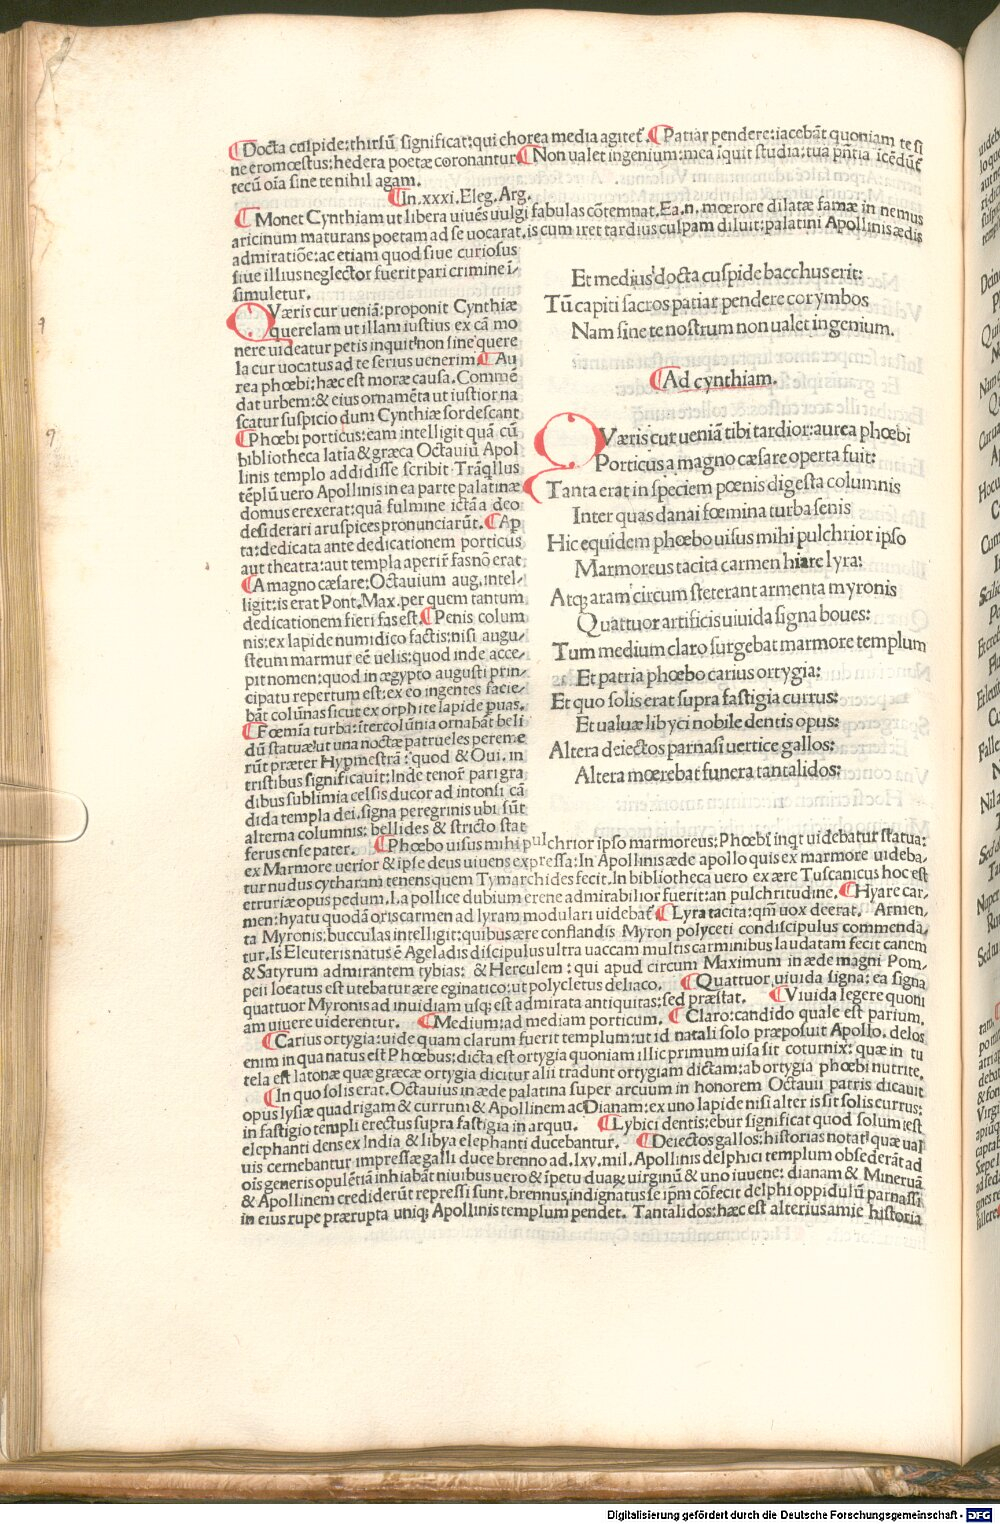 ¶Docta cuspide:thirsũ significat:qui chorea media agitet̃. ¶Patiar pendere:iacebãt quoniam te si
ne erom œstus:hedera poetæ coronantur ¶Non ualet ingenium:mea ĩquit studia:tua p̃ñtia ĩcẽdũt̃
tecũ oĩa sine te nihil agam.
¶In.xxxi.Eleg.Arg.
¶Monet Cynthiam ut libera uiuẽs uulgi fabulas cõtemnat.Ea.n.mœrore dilatæ famæ in nemus
aricinum maturans poetam ad se uocarat.is cum iret tardius culpam diluit:palatini Apollinis ædis
admiratiõe:ac etiam quod siue curiosus
siue illius neglector fuerit pari crimine ĩ
simuletur.
QVæris cur ueniã:proponit Cynthiæ
querelam ut illam iustius ex cã mo
nere uideatur petis inquit non sine quere
la cur uocatus ad te serius uenerim ¶Au
rea phœbi:hæc est moræ causa.Commẽ
dat urbem:& eius ornamẽta ut iustior na
scatur suspicio dum Cynthiæ sordescant
¶Phœbi porticus:eam intelligit quã cũ
bibliotheca latia & græca Octauiũ Apol
linis templo addidisse scribit Trãq̃llus
tẽplũ uero Apollinis in ea parte palatinæ
domus erexerat:quã fulmine ictã a deo
desiderari aruspices pronunciarũt. ¶Ap
ta:dedicata ante dedicationem porticus
aut theatra:aut templa aperiri fas nõ erat
¶A magno cæsare:Octauium aug.intel/
ligit:is erat Pont.Max.per quem tantum
dedicationem fieri fas est. ¶Penis colum
nis:ex lapide numidico factis:nisi augu/
steum marmur eẽ uelis:quod inde acce/
pit nomen:quod in ægypto augusti prin/
cipatu repertum est:ex eo ingentes facie/
bãt colũnas sicut ex orphite lapide puas.
¶Fœmĩa turba:ĩtercolũnia ornabãt beli
dũ statuæ:ut una noctæ patrueles pereme
rũt præter Hypmestrã:quod & Oui.in
tristibus significauit:Inde tenor̃ pari gra
dibus sublimia celsis ducor ad intonsi cã
dida templa dei.signa peregrinis ubi sũt
alterna columnis: bellides & stricto stat
ferus ense pater.
Et medius docta cuspide bacchus erit:
Tũ capiti sacros patiar pendere corymbos
Nam sine te nostrum non ualet ingenium.
¶Ad cynthiam.
QVæris cur ueniã tibi tardior:aurea phœbi
Porticus a magno cæsare operta fuit:
Tanta erat in speciem pœnis digesta columnis
Inter quas danai fœmina turba senis
Hic equidem phœbo uisus mihi pulchrior ipso
Marmoreus tacita carmen hiare lyra:
Atq; aram circum steterant armenta myronis
Quattuor artificis uiuida signa boues:
Tum medium claro surgebat marmore templum
Et patria phœbo carius ortygia:
Et quo solis erat supra fastigia currus:
Et ualuæ libyci nobile dentis opus:
Altera deiectos parnasi uertice gallos:
Altera mœrebat funera tantalidos:
¶Phœbo uisus mihi pulchrior ipso marmoreus:Phœbĩ inq̃t uidebatur statua:
ex Marmore uerior & ipse deus uiuens expressa:In Apollinis æde apollo quis ex marmore uideba/
tur nudus cytharam tenens quem Tymarchides fecit.In bibliotheca uero ex ære Tuscanicus hoc est
etruriæ opus pedum.L a pollice dubium erene admirabilior fuerit:an pulchritudine. ¶Hyare car/
men:hyatu quodã oris carmen ad lyram modulari uidebat̃ ¶Lyra tacita:qm̃ uox deerat. Armen/
ta Myronis:bucculas intelligit:quibus ære conflandis Myron polyceti condiscipulus commenda/
tur.Is Eleuteris natus ẽ Ageladis discipulus ultra uaccam multis carminibus laudatam fecit canem
& Satyrum admirantem tybias: & Herculem: qui apud circum Maximum in æde magni Pom/
peii locatus est utebatur ære eginatico:ut polycletus deliaco. ¶Quattuor uiuida signa: ea signa
quattuor Myronis ad inuidiam usq; est admirata antiquitas:sed præstat. ¶Viuida legere quoni
am uiuere uiderentur. ¶Medium:ad mediam porticum. ¶Claro:candido quale est parium.
¶Carius ortygia:uide quam clarum fuerit templum:ut id natali solo præposuit Apollo. delos
enim in qua natus est Phœbus:dicta est ortygia quoniam illic primum uisa sit coturnix: quæ in tu
tela est latonæ quæ græcæ ortygia dicitur alii tradunt ortygiam dictam:ab ortygia phœbi nutrite.
¶In quo solis erat.Octauius in æde palatina super arcuum in honorem Octauii patris dicauit
opus lysiæ quadrigam & currum & Apollinem ac Dianam:ex uno lapide nisi alter is sit solis currus:
in fastigio templi erectus supra fastigia in arquu. ¶Lybici dentis:ebur significat quod solum iest
elephanti dens ex India & libya elephanti ducebantur. ¶Deiectos gallos:historias notat̃ quæ ual
uis cernebantur impressæ galli duce brenno ad.lxv.mil.Apollinis delphici templum obsederãt ad
oĩs generis opulẽtiã inhiabãt niuibus uero & ĩpetu duaꝝ uirginũ & uno iuuene: dianam & Mineruã
& Apollinem crediderũt repressi sunt.brennus indignatus se ipm cõfecit delphi oppidulũ parnassi
in eius rupe prærupta uniq; Apollinis templum pendet. Tantalidos:hæc est alterius amie historia
Digitalisierung gefördert durch die Deutsche Forschungsgemeinschaft - DFG